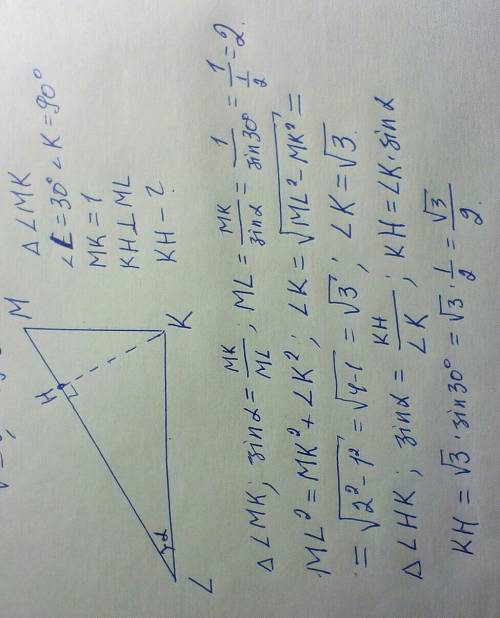 M
H
α
L
K
Δ LMK
∠L=30° ∠K=90°
MK=1
KH⊥ML
KH-?
Δ LMK; sinα = MK/ML; ML = MK/sinα = 1/sin30° = 1/(1/2) = 2.
ML² = MK² + LK²; LK = √(ML² - MK²) =
= √(2²-1²) = √(4-1) = √3; LK = √3.
Δ LHK; sinα = KH/LK; KH = LK·sinα
KH = √3·sin30° = √3·1/2 = √3/2.